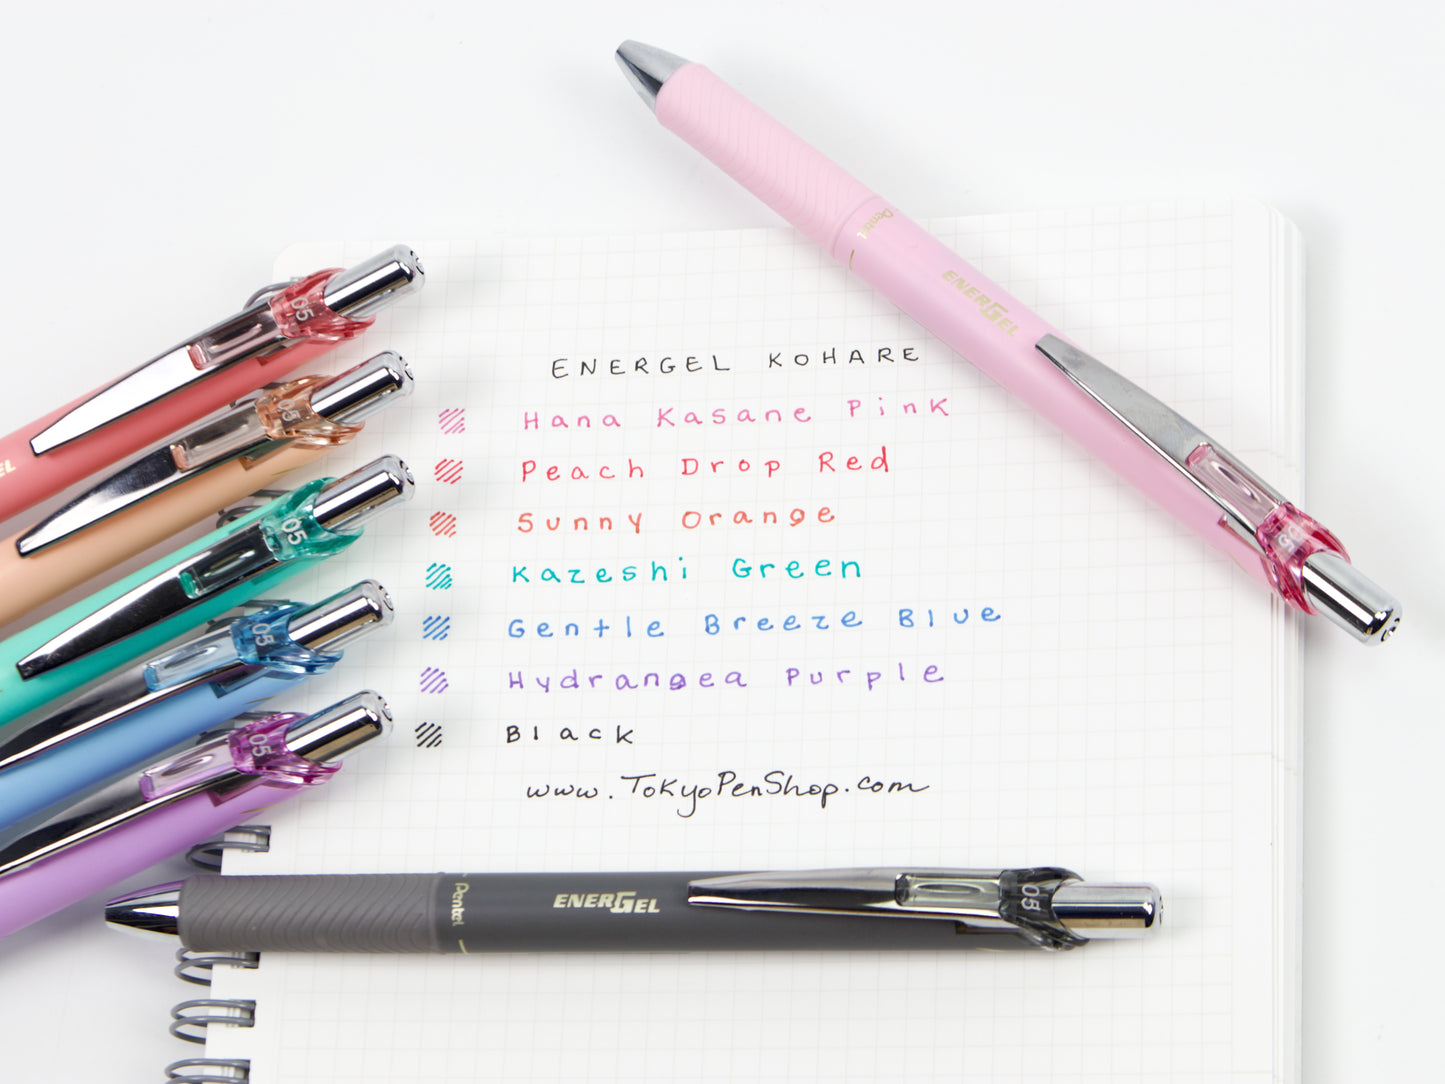 Pentel
ENERGEL
05
05
05
05
05
05
GEL
ENERGEL KOHARE
Hana Kasane Pink
Peach Drop Red
Sunny Orange
Kazeshi Green
Gentle Breeze Blue
Hydrangea Purple
Black
www.TokyoPenShop.com
Pentel
ENERGEL
05